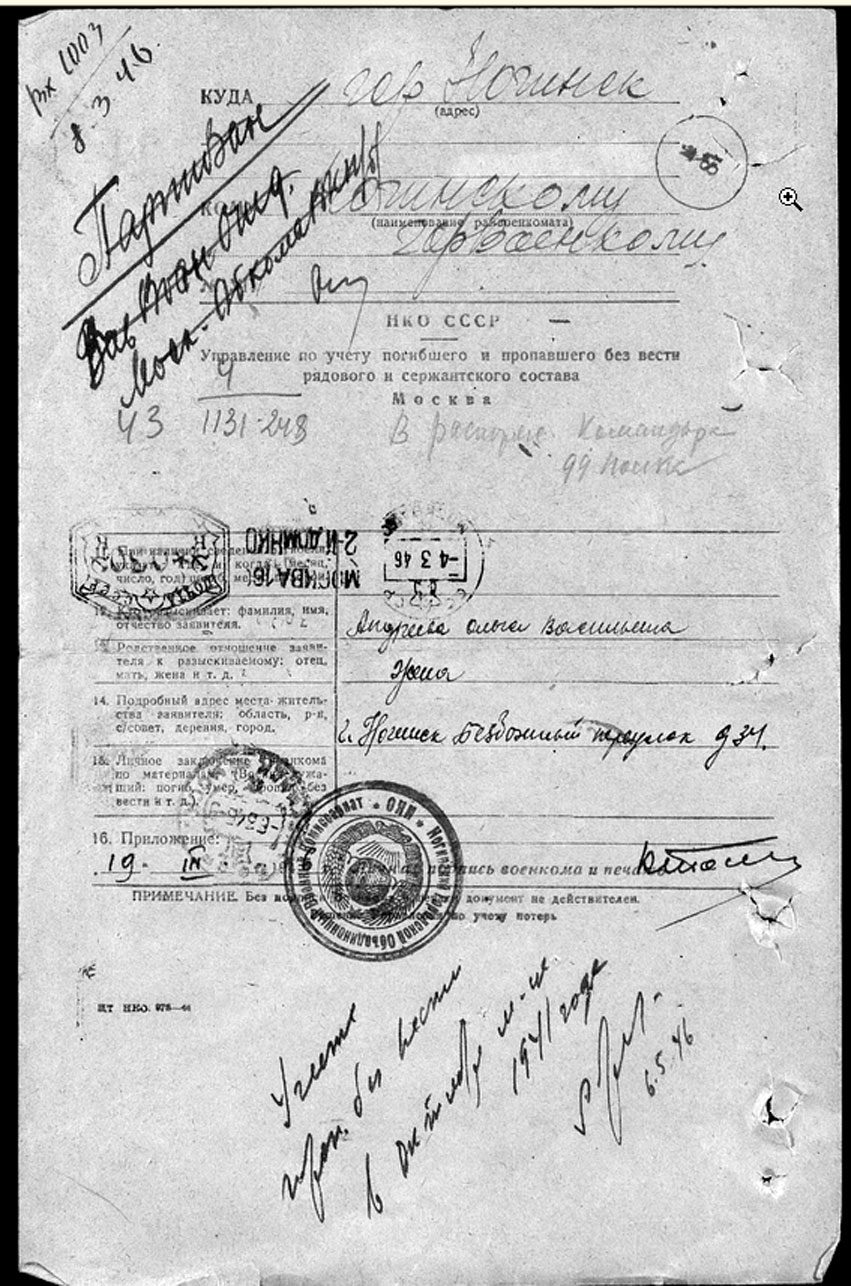 вх 1003
8.3.46
КУДА гор Ногинск
(адрес)
Ногинскому
(наименование райвоенкомата)
горвоенкому
НКО СССР
Управление по учету погибшего и пропавшего без вести
рядового и сержантского состава
Москва
4
43 1131-248
В распоряж. Командира
99 полка
МОСКВА 16
2-й ДОМ НКО
-4 3 46
ПОЧТА СССР
число, год)
12. Кто разыскивает: фамилия, имя,
отчество заявителя.
Андреева Ольга Васильевна
13. Родственное отношение заяви-
теля к разыскиваемому: отец,
мать, жена и т. д.
Жена
14. Подробный адрес места житель-
ства заявителя: область, р-н,
с/совет, деревня, город.
г. Ногинск Безбожный переулок д 34.
15. Личное заключение военкома
по материалам. (Военнослужа-
щий: погиб, умер, пропал без
вести и т. д.).
16. Приложение:
19 - IV
подпись военкома и печать
ПРИМЕЧАНИЕ. Без документ не действителен.
по учету потерь
Ногинский Городской Объединенный Военный Комиссариат
ШТ НКО. 978—44
Учесть
проп. без вести
в октябре м-це
1941 года
6.5.46